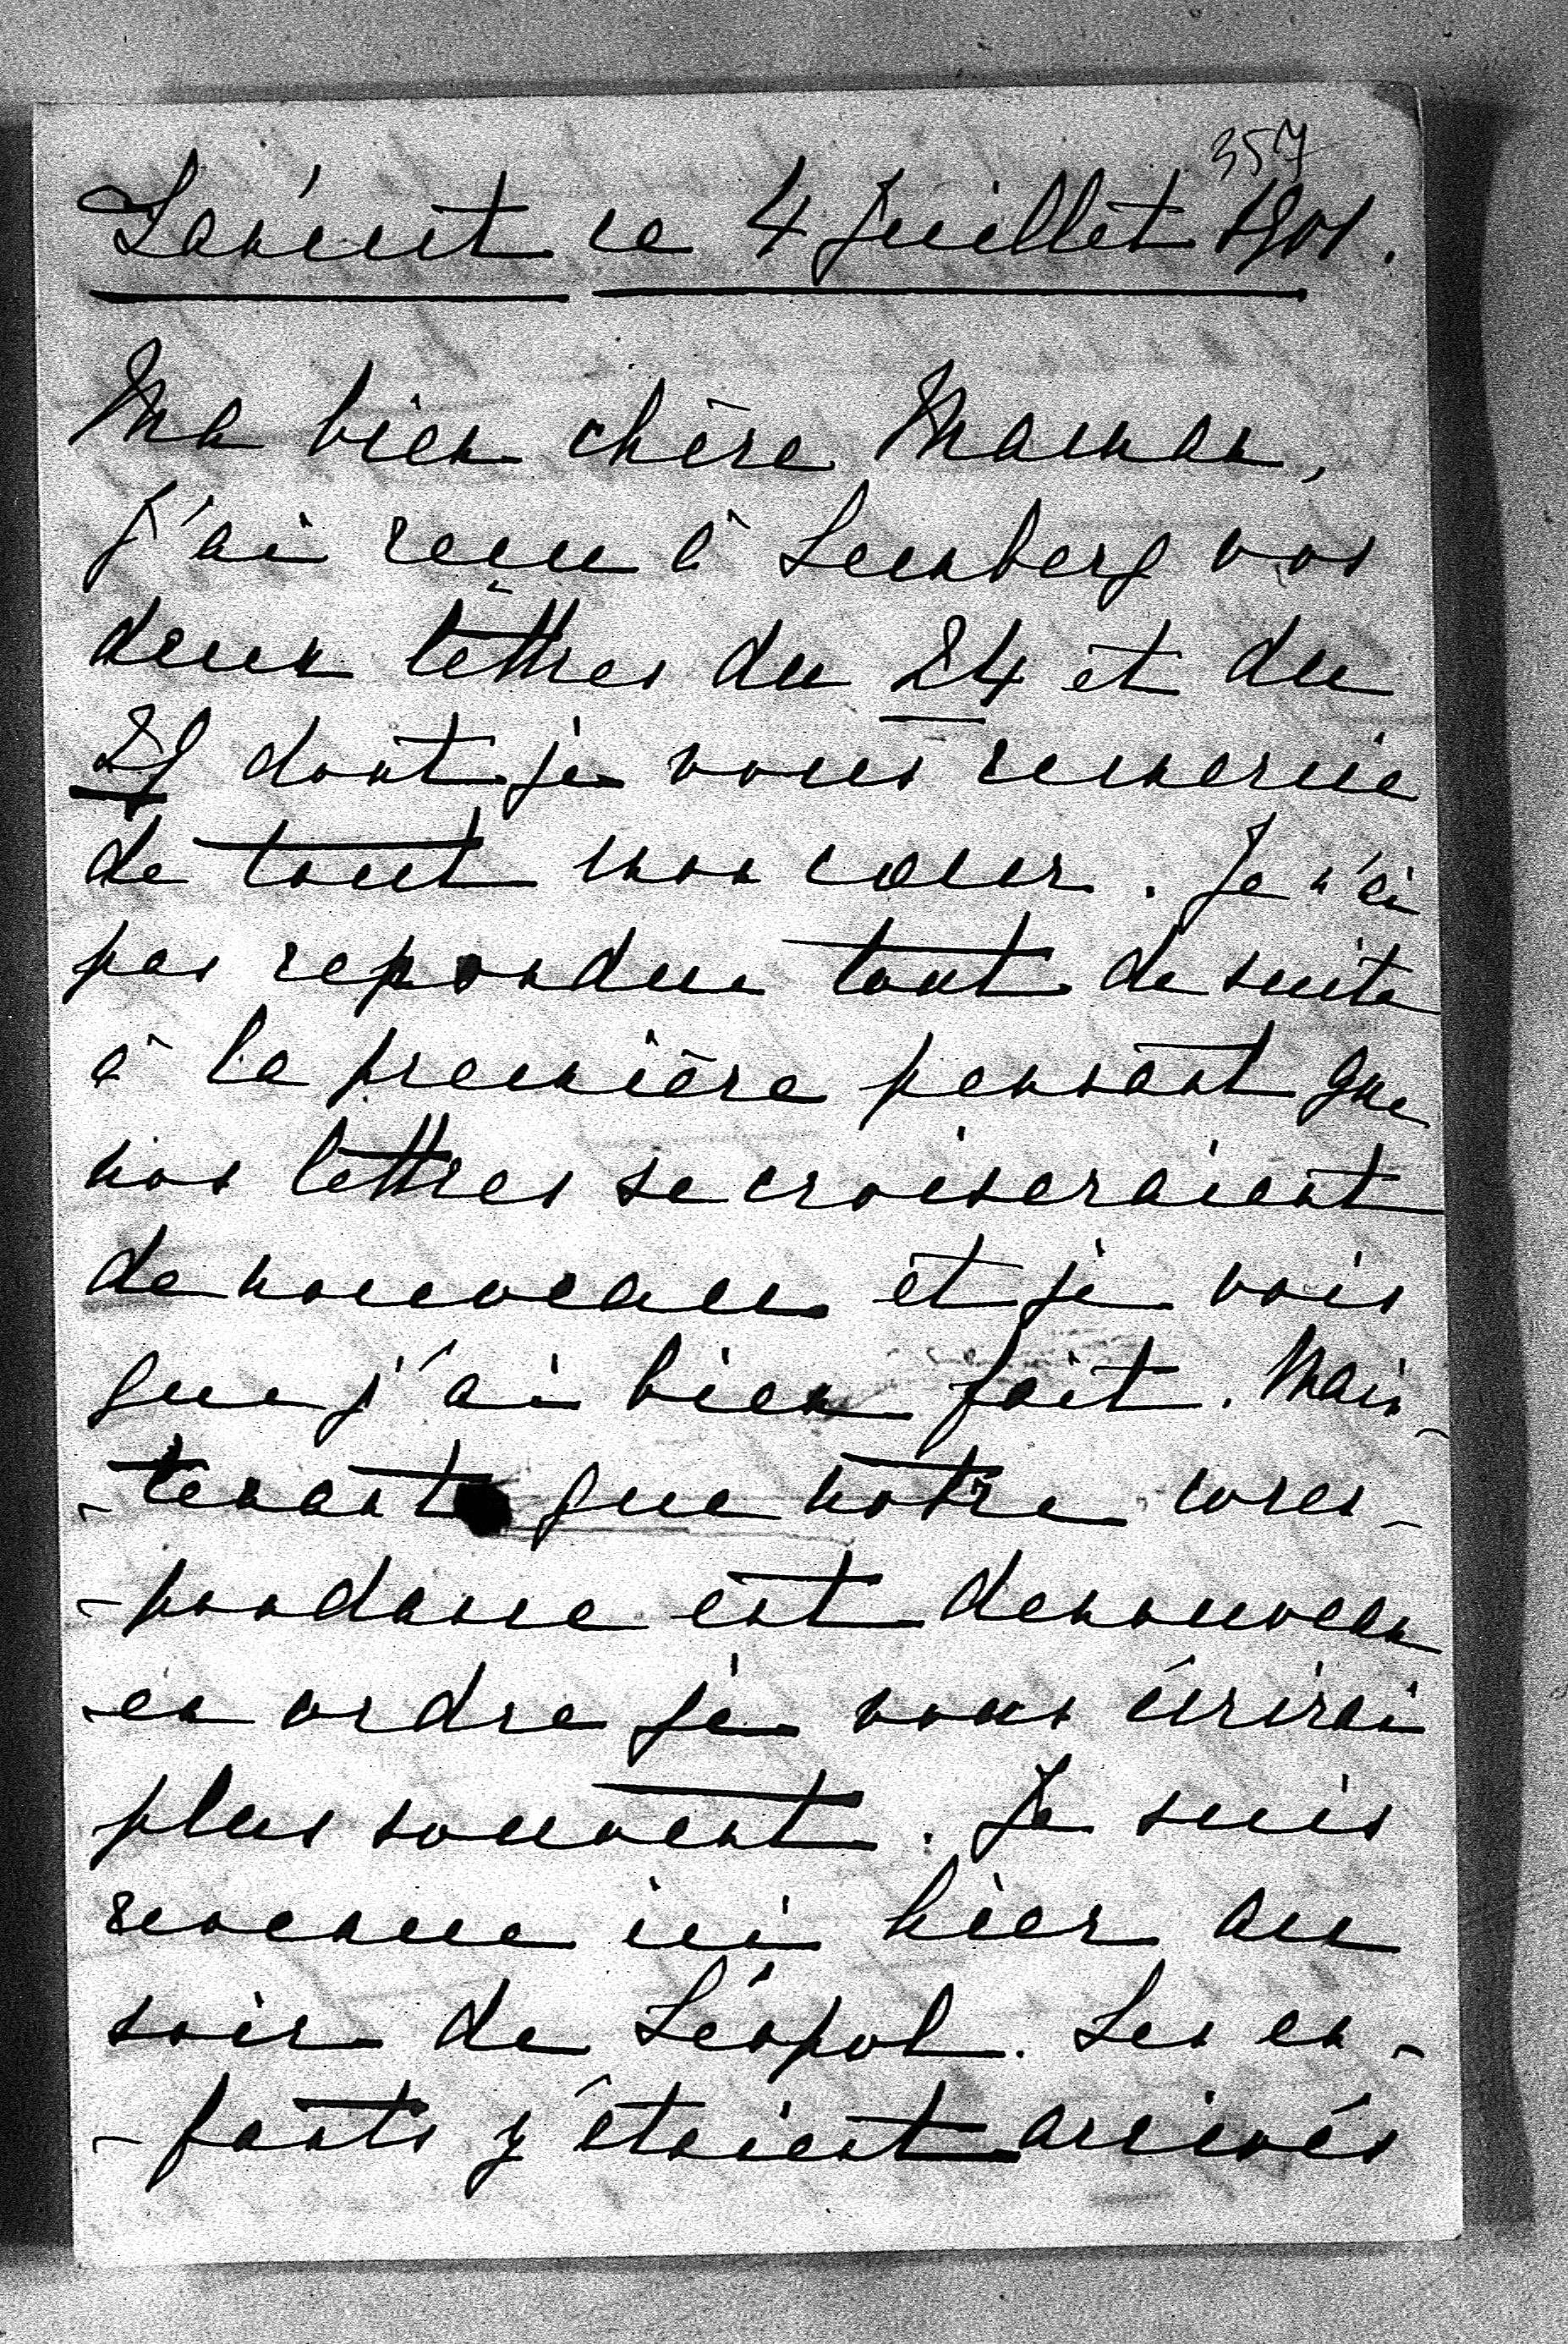 357
Lańcut ce 4 Juillet 1901.
Ma bien chère Maman,
J'ai reçu à Lemberg vos
deux lettres du 24 et du
29 dont je vous remercie
de tout mon cœur. Je n'ai
pas repondu tout de suite
à la première pensant que
nos lettres se croiseraient
de nouveau et je vois
que j'ai bien fait. Main-
-tenant que notre corres-
-pondance est denouveau
en ordre je vous écrirai
plus souvent. Je suis
revenue ici hier au
soir de Léopol. Les en-
-fants y étaient arrivés